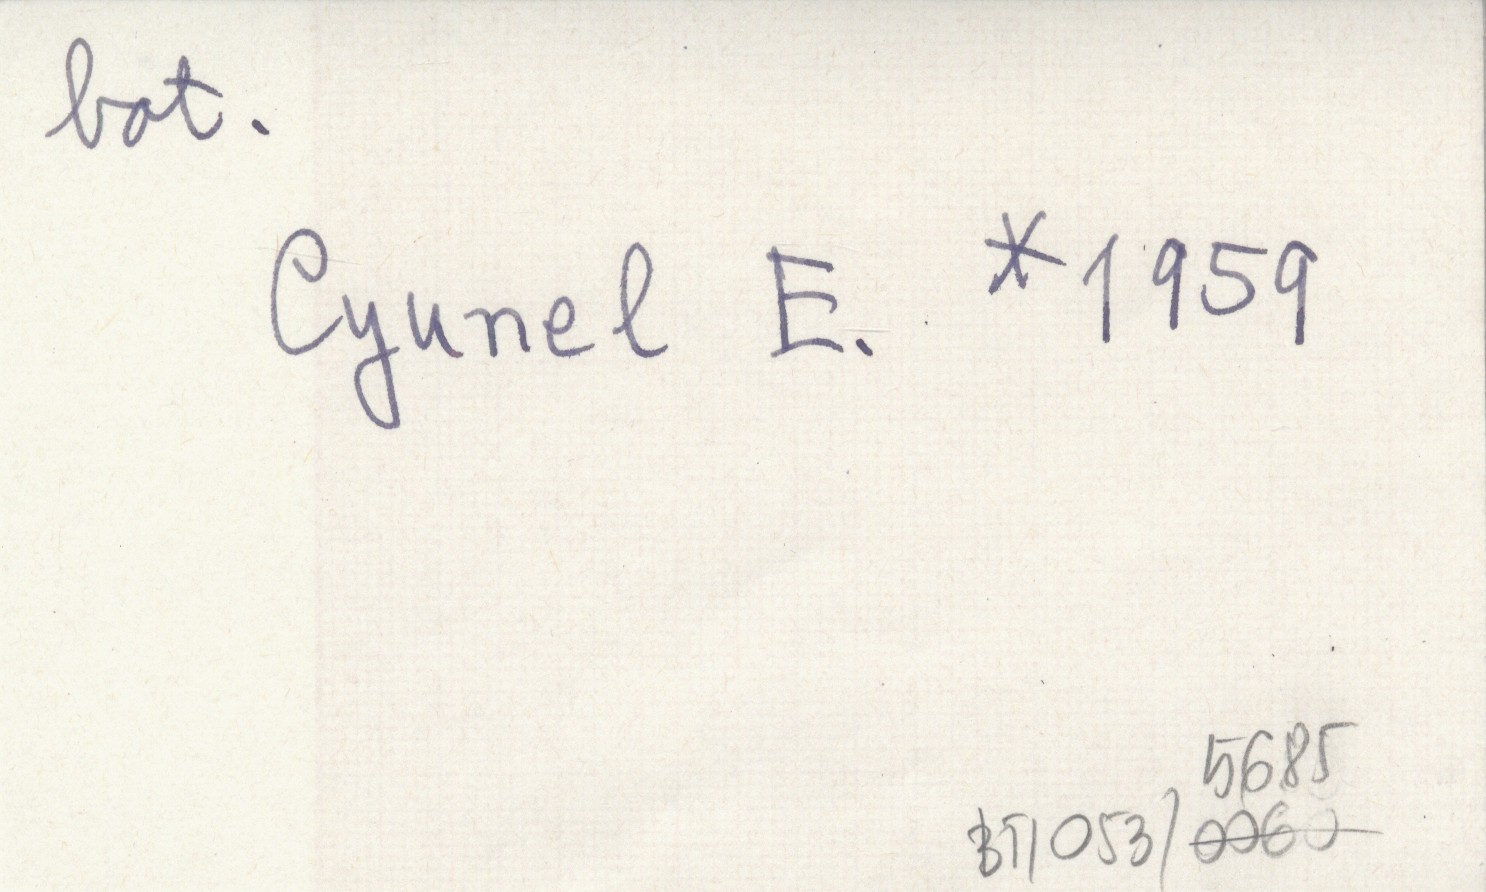 bot.
Cyunel E. *1959
5685
BT/053/0060